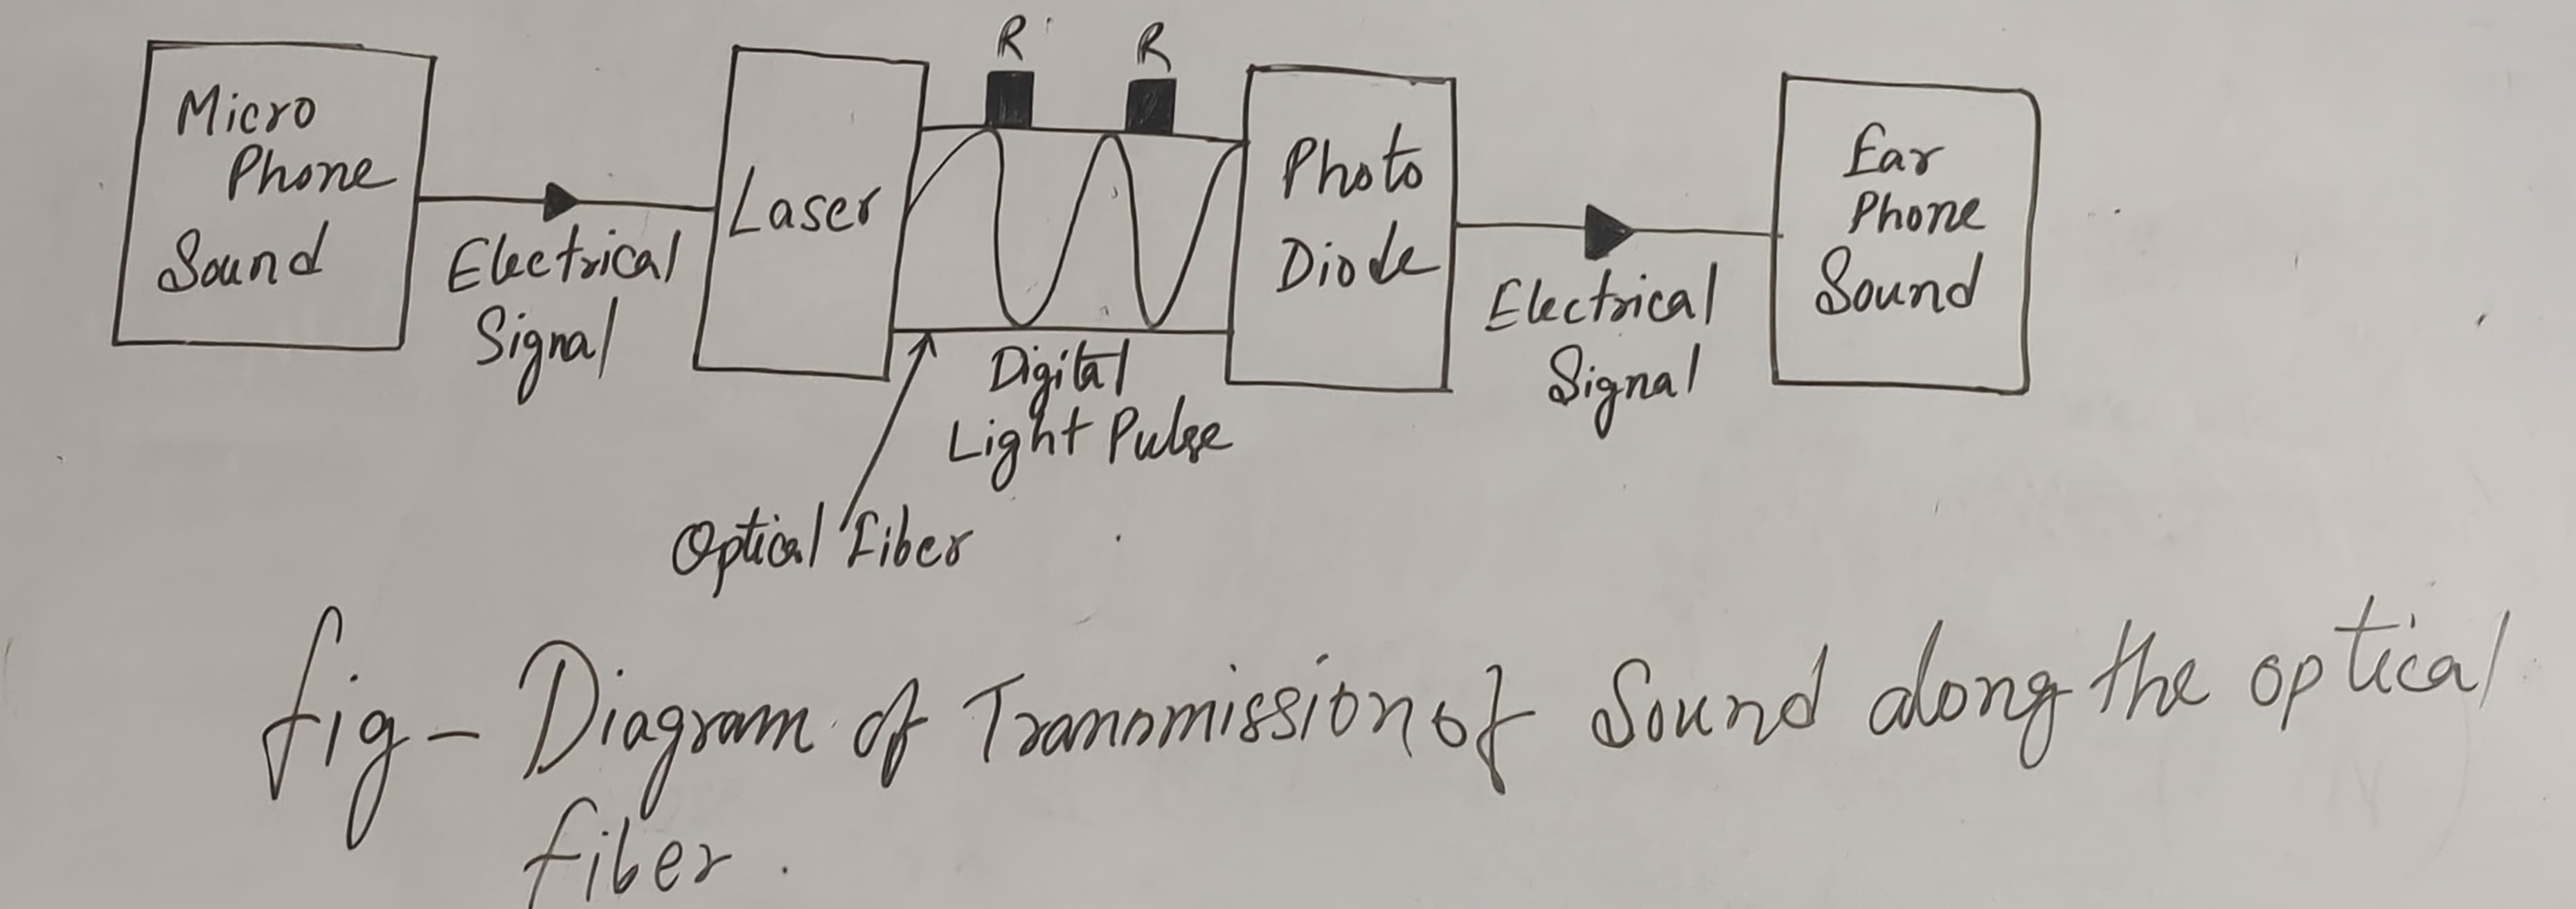 Micro
Phone
Sound
Electrical
Signal
Laser
R
R
Digital
Light Pulse
Optical Fiber
Photo
Diode
Electrical
Signal
Ear
Phone
Sound
fig - Diagram of Trannmission of Sound along the optical
fiber.